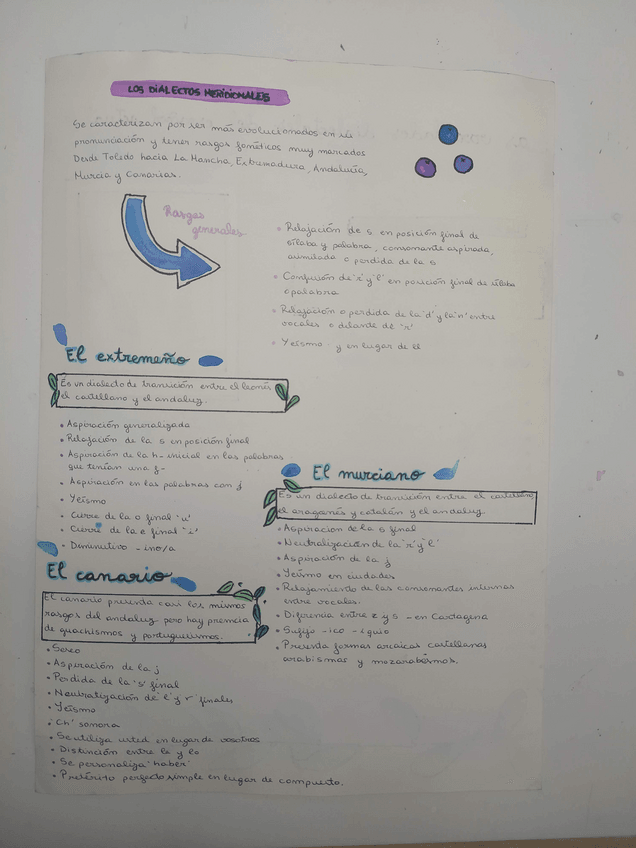 LOS DIALECTOS MERIDIONALES
Se caracterizan por ser más evolucionados en su
pronunciación y tener rasgos fonéticos muy marcados
Desde Toledo hacia La Mancha, Extremadura, Andalucía,
Murcia y Canarias.
Rasgos
generales
• Relajación de s en posición final de
sílaba y palabra, consonante aspirada,
asimilada o perdida de la s
• Confusión de 'r' y 'l' en posición final de sílaba
o palabra
• Relajación o perdida de la 'd' y la 'n' entre
vocales o delante de 'r'
• Yeísmo: y en lugar de ll
El extremeño
Es un dialecto de transición entre el leonés
el castellano y el andaluz.
• Aspiración generalizada
• Relajación de la s en posición final
• Aspiración de la h- inicial en las palabras
que tenían una f-
• Aspiración en las palabras con j
• Yeísmo
• Cierre de la o final 'u'
• Cierre de la e final 'i'
• Diminutivo -ino/a
El murciano
Es un dialecto de transición entre el castellano,
el aragonés y catalán y el andaluz.
• Aspiracion de la s final
• Neutralización de la 'r' y 'l'
• Aspiración de la j
• Yeísmo en ciudades
• Relajamiento de las consonantes internas
entre vocales.
• Diferencia entre z y s - en Cartagena
• Sufijo -ico -iquio
• Presenta formas arcaicas castellanas
arabismos y mozarabismos.
El canario
El canario presenta casi los mismos
rasgos del andaluz pero hay presencia
de guachismos y portuguesismos.
• Seseo
• Aspiración de la j
• Perdida de la 's' final
• Neutralización de 'l' y 'r' finales
• Yeísmo
• Ch' sonora
• Se utiliza usted en lugar de vosotros
• Distinción entre le y lo
• Se personaliza 'haber'
• Pretérito perfecto simple en lugar de compuesto.